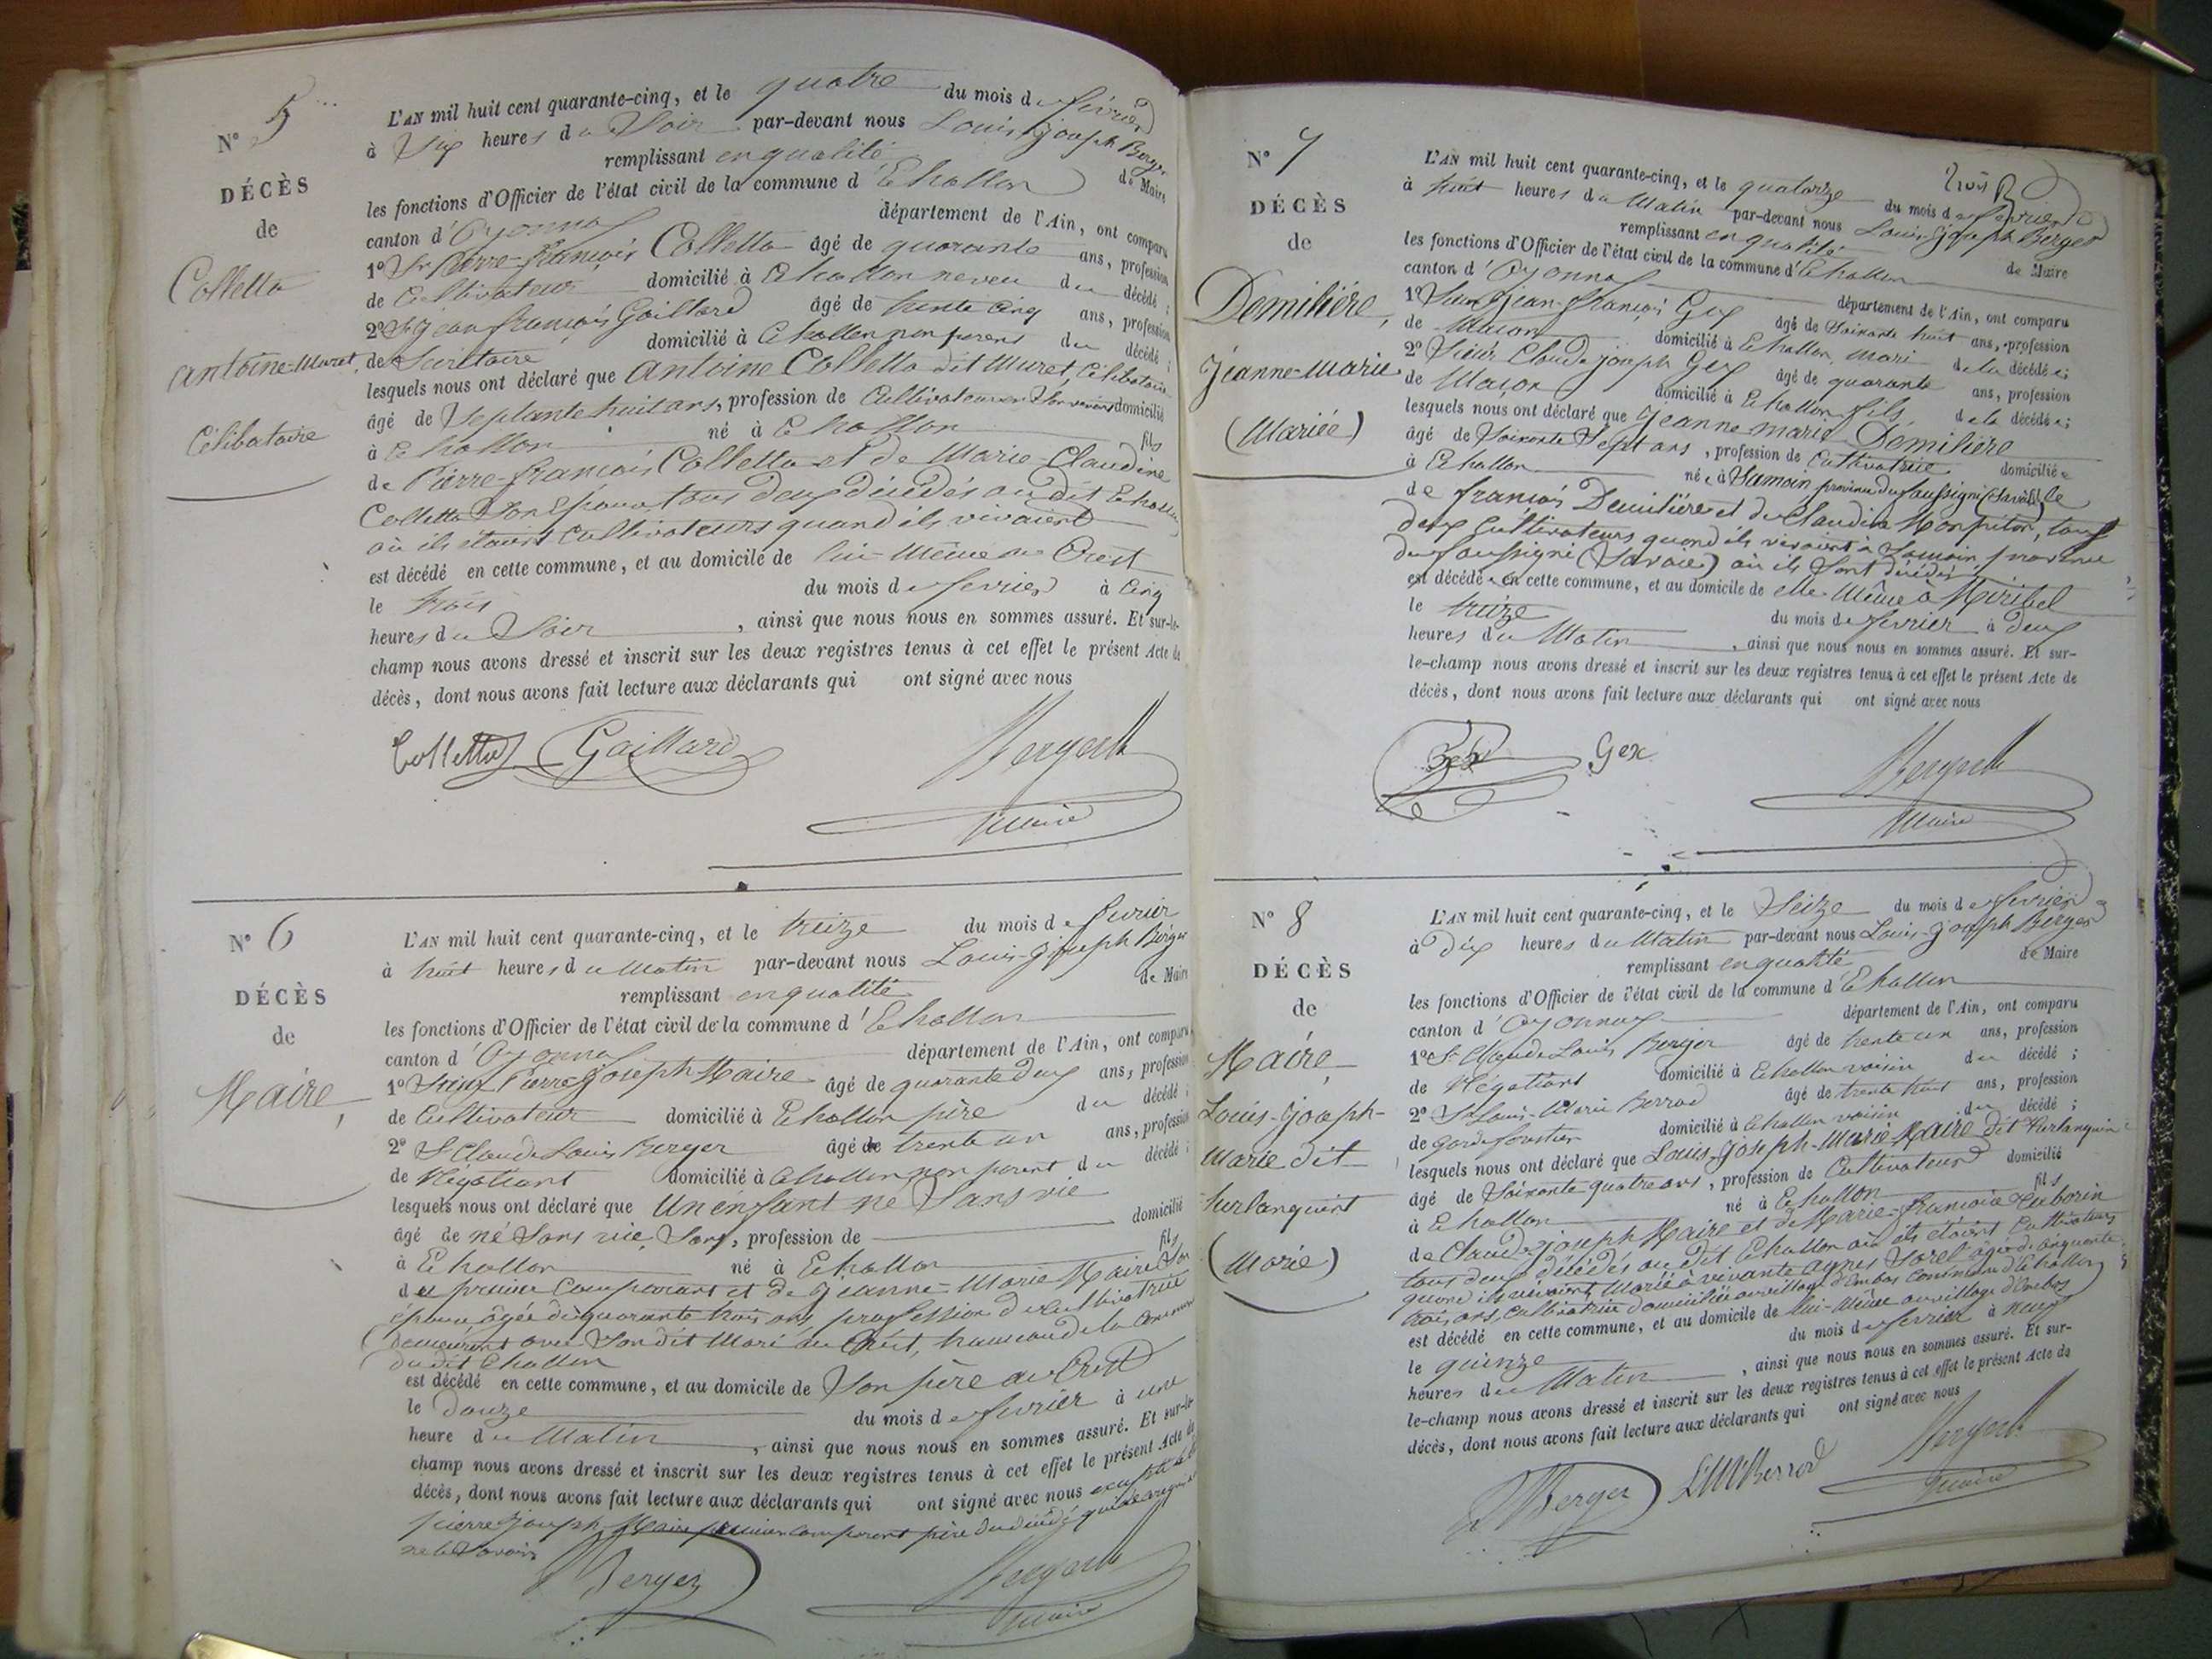 N° 5
DÉCÈS
de
Colletta
Antoine-Muret,
Célibataire
L'AN mil huit cent quarante-cinq, et le quatre du mois de février
à Six heures du Soir par-devant nous Louis Joseph Berger
remplissant en qualité de Maire
les fonctions d'Officier de l'état civil de la commune d'Echallon
canton d'Oyonnax département de l'Ain, ont comparu
1° Sr Pierre-françois Colletta âgé de quarante ans, profession
de Cultivateur domicilié à Echallon neveu du décédé ;
2° Sr Jean françois Gaillard âgé de trente cinq ans, profession
de Secrétaire domicilié à Echallon non parent du décédé ;
lesquels nous ont déclaré que Antoine Colletta dit Muret, Célibataire
âgé de Septante huit ans, profession de Cultivateur en Son vivant domicilié
à Echallon né à Echallon fils
de Pierre-françois Colletta et de Marie-Claudine
Colletta Son Epouse, tous deux décédés au dit Echallon
où ils étaient Cultivateurs quand ils vivaient
est décédé en cette commune, et au domicile de lui-Même au Crest
le trois du mois de fevrier à Cinq
heures du Soir , ainsi que nous nous en sommes assuré. Et sur-le-
champ nous avons dressé et inscrit sur les deux registres tenus à cet effet le présent Acte de
décès, dont nous avons fait lecture aux déclarants qui ont signé avec nous
Colletta Gaillard Berger
Maire
N° 6
DÉCÈS
de
Maire,
L'AN mil huit cent quarante-cinq, et le treize du mois de fevrier
à huit heures du Matin par-devant nous Louis-Joseph Berger
remplissant en qualité de Maire
les fonctions d'Officier de l'état civil de la commune d'Echallon
canton d'Oyonnax département de l'Ain, ont comparu
1° Sieur Pierre Joseph Maire âgé de quarante deux ans, profession
de Cultivateur domicilié à Echallon père du décédé ;
2° Sr Claude Louis Berger âgé de trente un ans, profession
de Négotiant domicilié à Echallon non parent du décédé ;
lesquels nous ont déclaré que Un enfant né Sans vie
âgé de né Sans vie Sans, profession de domicilié
à Echallon né à Echallon fils
du premier Comparant et de Jeanne-Marie Maire Son
épouse âgée de quarante trois ans, profession de Cultivatrice
demeurant avec Son dit Mari au Crest, hameau de la Commune
du dit Echallon
est décédé en cette commune, et au domicile de Son père au Crest
le douze du mois de fevrier à une
heure du Matin , ainsi que nous nous en sommes assuré. Et sur-le-
champ nous avons dressé et inscrit sur les deux registres tenus à cet effet le présent Acte de
décès, dont nous avons fait lecture aux déclarants qui ont signé avec nous excepté le dit
pierre Joseph Maire premier comparant père du décédé qui de ce requis
ne le Savoir
Berger Berger
Maire
N° 7
DÉCÈS
de
Demilière,
Jeanne-Marie
(Mariée)
trois
L'AN mil huit cent quarante-cinq, et le quatorze du mois de fevrier
à huit heures du Matin par-devant nous Louis-Joseph Berger
remplissant en qualité de Maire
les fonctions d'Officier de l'état civil de la commune d'Echallon
canton d'Oyonnax département de l'Ain, ont comparu
1° Sieur Jean-françois Gex âgé de Soixante huit ans, profession
de Maçon domicilié à Echallon, mari de la décédée ;
2° Sieur Claude joseph Gex âgé de quarante ans, profession
de Maçon domicilié à Echallon fils de la décédée ;
lesquels nous ont déclaré que Jeanne-marie Demilière
âgé de Soixante Sept ans, profession de Cultivatrice domiciliée
à Echallon née à Samoin province du faussigni (Savoie) fille
de françois Demilière et de Claudine Monpiton, tous
deux Cultivateurs quand ils vivaient à Samoin, province
du faussigni (Savoie) où ils Sont décédés
est décédée en cette commune, et au domicile de elle-Même à Miribel
le treize du mois de fevrier à deux
heures du Matin , ainsi que nous nous en sommes assuré. Et sur-
le-champ nous avons dressé et inscrit sur les deux registres tenus à cet effet le présent Acte de
décès, dont nous avons fait lecture aux déclarants qui ont signé avec nous
Gex Gex Berger
Maire
N° 8
DÉCÈS
de
Maire,
Louis-Joseph-
Marie dit
hurlanquint
(Marié)
L'AN mil huit cent quarante-cinq, et le Seize du mois de fevrier
à dix heures du Matin par-devant nous Louis-Joseph Berger
remplissant en qualité de Maire
les fonctions d'Officier de l'état civil de la commune d'Echallon
canton d'Oyonnax département de l'Ain, ont comparu
1° Sr Claude Louis Berger âgé de trente un ans, profession
de Négotiant domicilié à Echallon voisin du décédé ;
2° Sr Louis-Marie Berrod âgé de trente huit ans, profession
de garde forestier domicilié à Echallon voisin du décédé ;
lesquels nous ont déclaré que Louis-Joseph-Marie Maire dit hurlanquin
âgé de Soixante quatre ans, profession de Cultivateur domicilié
à Echallon né à Echallon fils
de Claude-joseph Maire et de Marie-françoise Taborin
tous deux décédés au dit Echallon où ils étaient Cultivateurs
quand ils vivaient, Marié à vivante Agnès Sorel âgée de cinquante
trois ans, Cultivatrice domiciliée au village d'Embas Commune d'Echallon
est décédé en cette commune, et au domicile de lui-Même au village d'Embas
le quinze du mois de fevrier à neuf
heures du Matin , ainsi que nous nous en sommes assuré. Et sur-
le-champ nous avons dressé et inscrit sur les deux registres tenus à cet effet le présent Acte de
décès, dont nous avons fait lecture aux déclarants qui ont signé avec nous
Berger LMBerrod Berger
Maire